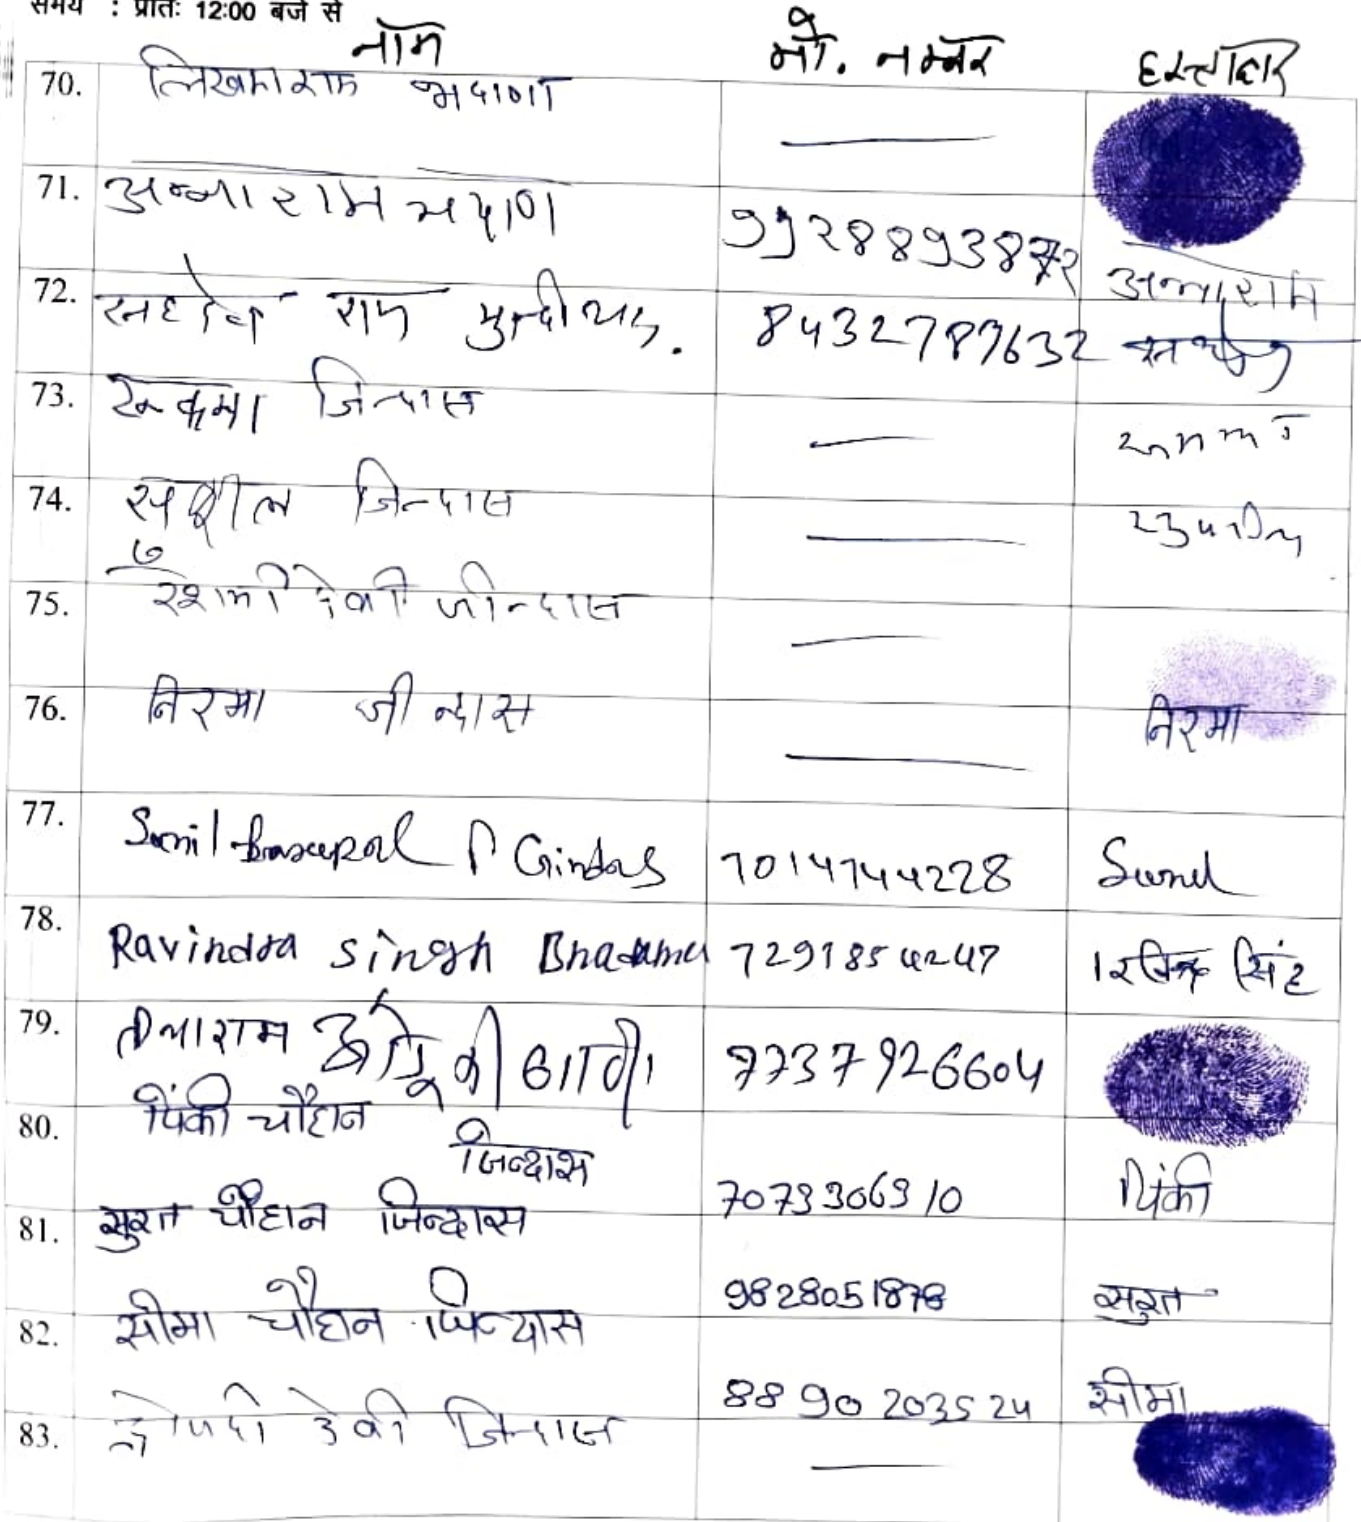 समय : प्रातः 12:00 बजे से
नाम मो. नम्बर हस्ताक्षर
70. लिखमाराम भदाणा
71. अन्नाराम भदाणा 9928893872 अन्नाराम
72. सहदेव राम मुन्दीयाड. 8432789632
73. रूकमा जिन्दास
74. सुशील जिन्दास
75. रेशमी देवी जीन्दास
76. निरमा जीन्दास निरमा
77. Sunil Gindas 7014744228 Sunil
78. Ravindra Singh Bhadana 7291854247 सिंह
79. की ढाणी 7737926604
80. पिंकी चौहान जिन्दास 7073306910 पिंकी
81. सुरत चौहान जिन्दास 9828051878 सुरत
82. सीमा चौहान जिन्दास 8890203524 सीमा
83. द्रोपदी देवी जिन्दास